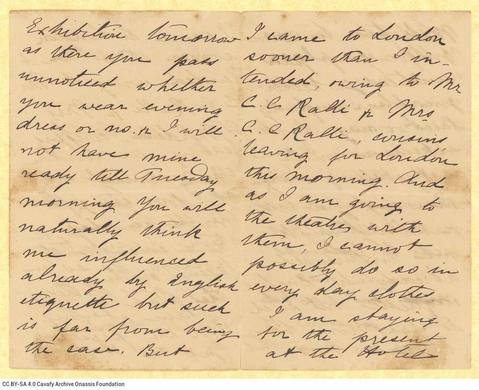 Exhibition tomorrow
as there you pass
unnoticed whether
you wear evening
dress or no. & I will
not have mine
ready till Tuesday
morning You will
naturally think
me influenced
already by English
etiquette but such
is far from being
the case. But
I came to London
sooner than I in-
tended, owing to Mr
C. C. Ralli & Mrs
C. C. Ralli, cousins
leaving for London
this morning. And
as I am going to
the theatres with
them, I cannot
possibly do so in
every day clothes
I am staying
for the present
at the Hotel
CC BY-SA 4.0 Cavafy Archive Onassis Foundation